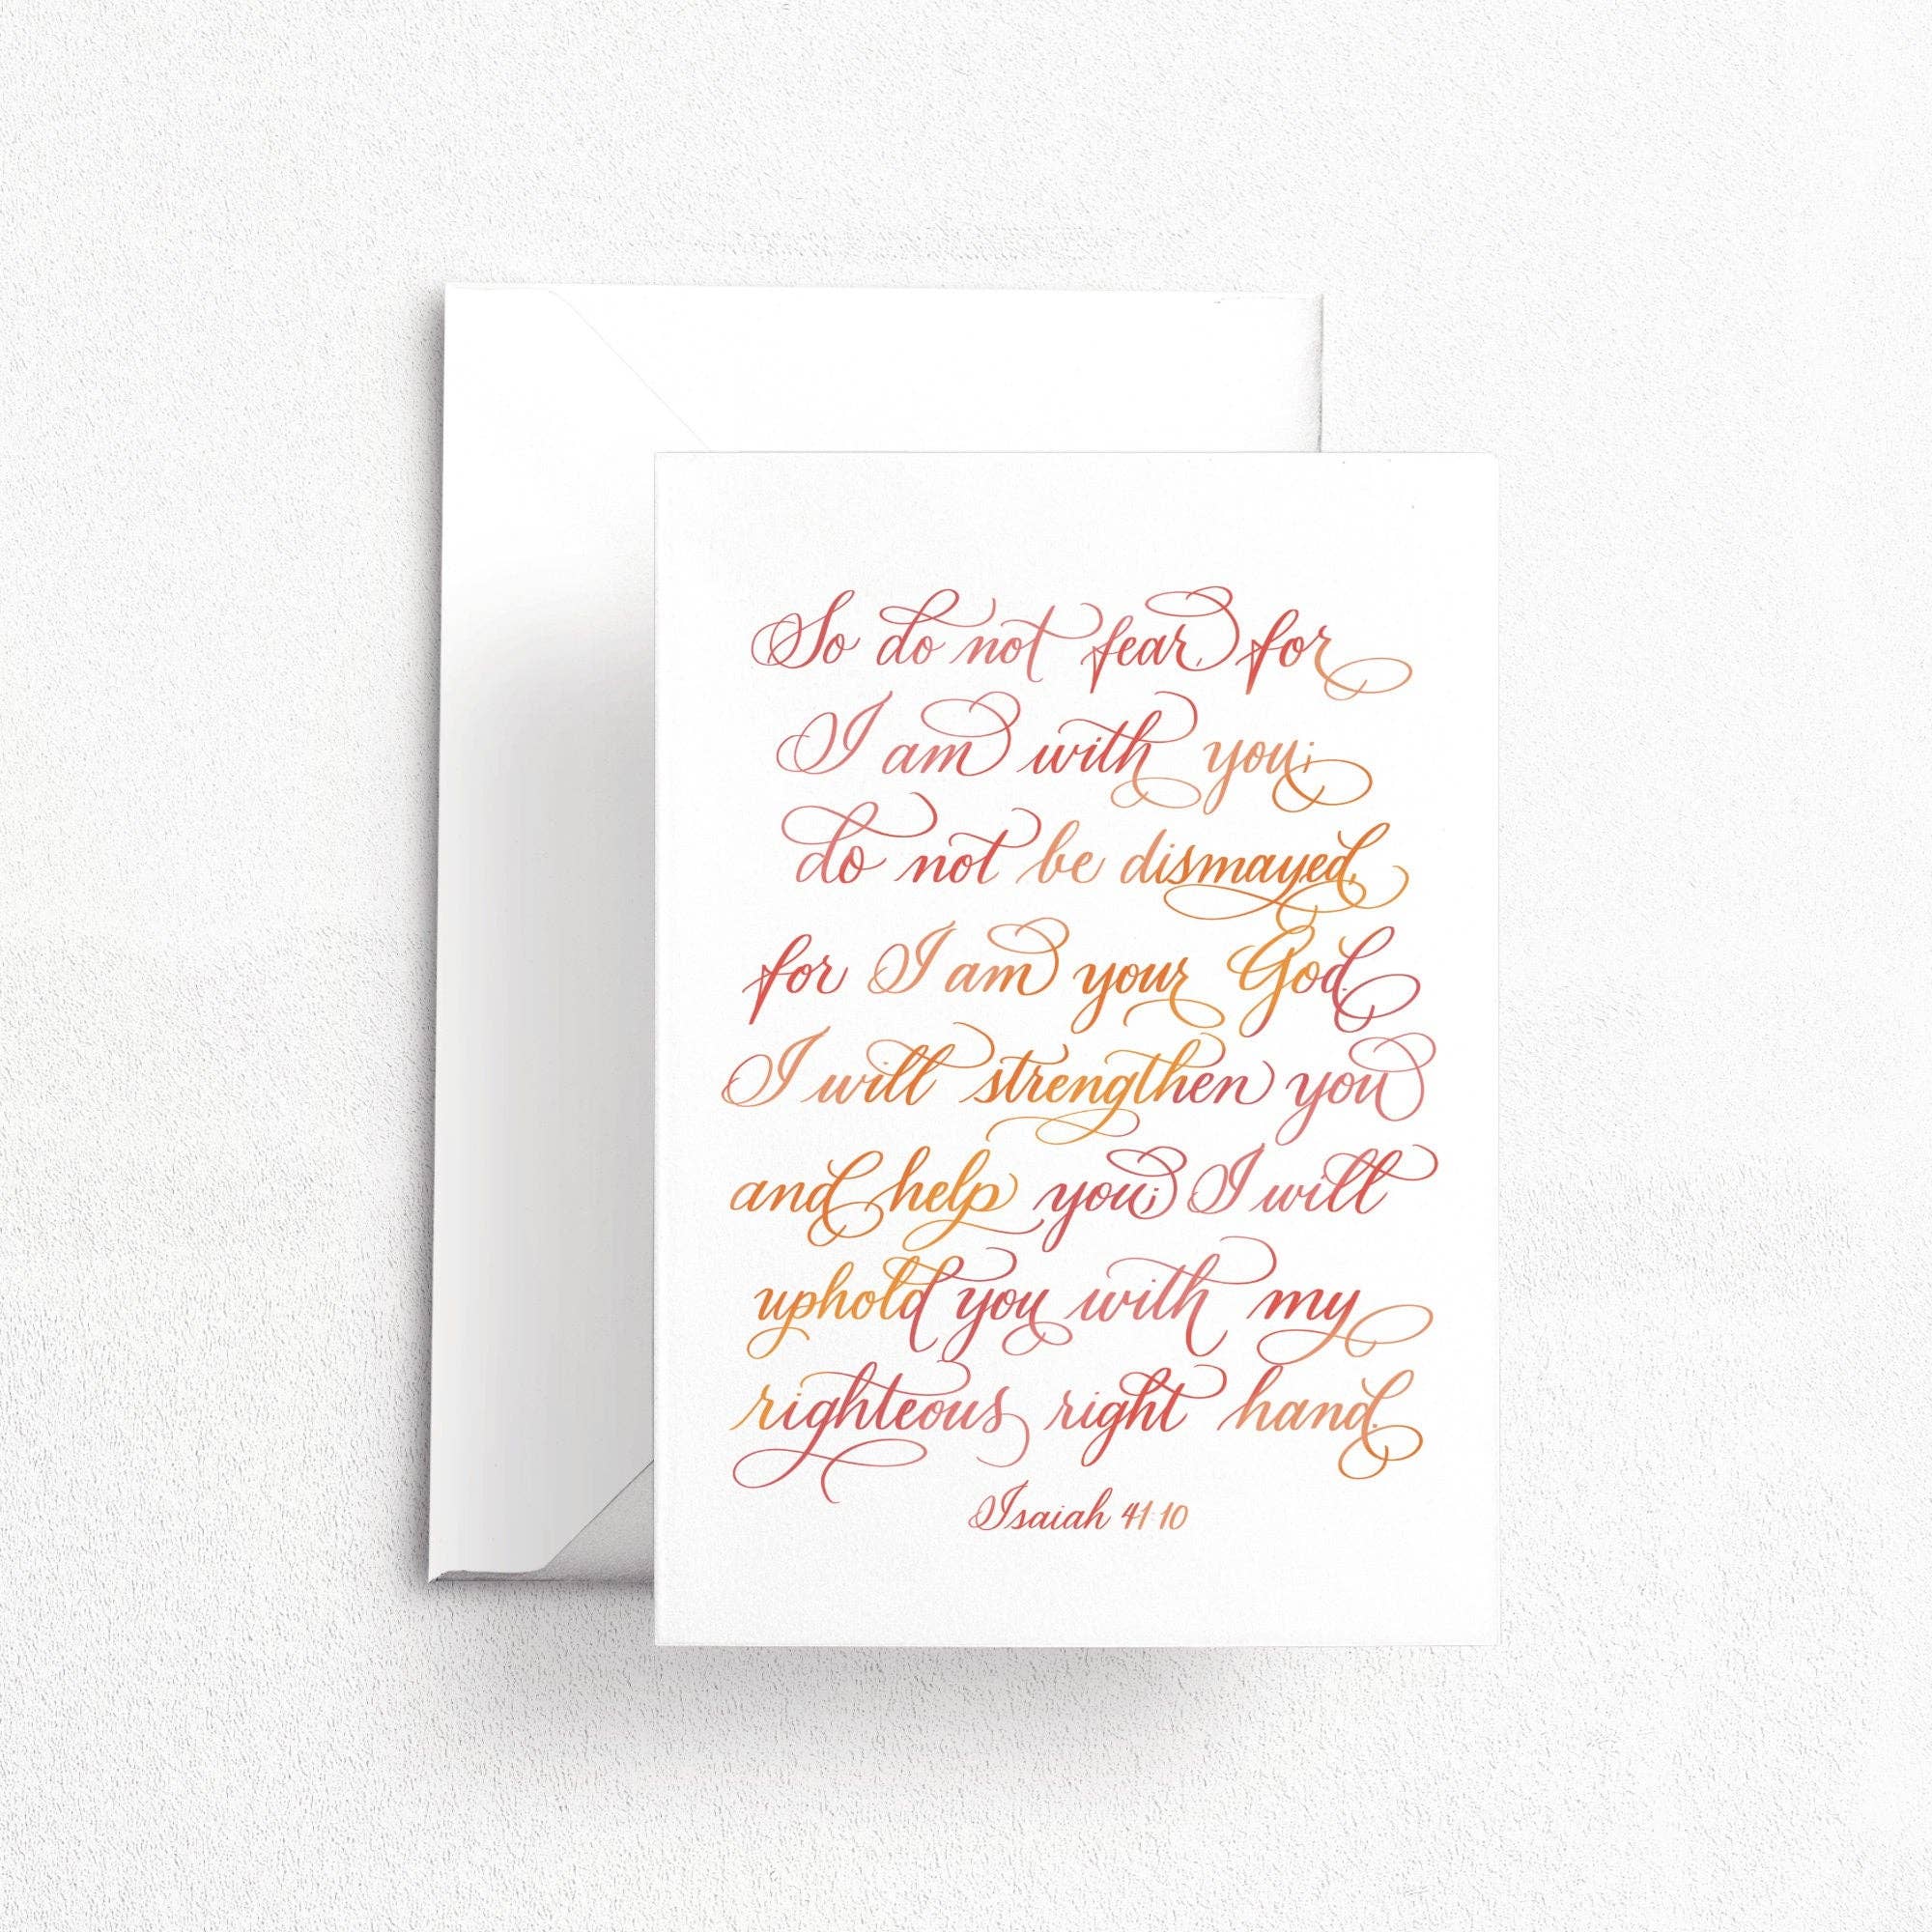 So do not fear, for
I am with you;
do not be dismayed,
for I am your God.
I will strengthen you
and help you; I will
uphold you with my
righteous right hand.
Isaiah 41:10